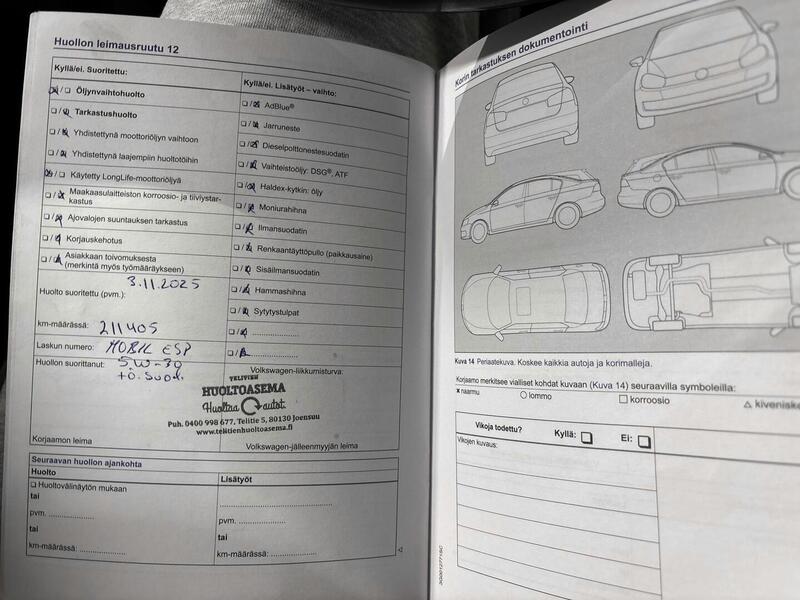 Huollon leimausruutu 12
Kyllä/ei. Suoritettu:
☒/☐ Öljynvaihtohuolto
☐/☒ Tarkastushuolto
☐/☒ Yhdistettynä moottoriöljyn vaihtoon
☐/☒ Yhdistettynä laajempiin huoltotöihin
☒/☐ Käytetty LongLife-moottoriöljyä
☐/☒ Maakaasulaitteiston korroosio- ja tiiviystar-
kastus
☐/☒ Ajovalojen suuntauksen tarkastus
☐/☒ Korjauskehotus
☐/☒ Asiakkaan toivomuksesta
(merkintä myös työmääräykseen)
Huolto suoritettu (pvm.):
3.11.2025
km-määrässä: 211405
Laskun numero: MOBIL ESP
Huollon suorittanut: 5W-30
+Ö.suod.
Korjaamon leima
Kyllä/ei. Lisätyöt – vaihto:
☐/☒ AdBlue®
☐/☒ Jarruneste
☐/☒ Dieselpolttonestesuodatin
☐/☒ Vaihteistoöljy: DSG®, ATF
☐/☒ Haldex-kytkin: öljy
☐/☒ Moniurahihna
☐/☒ Ilmansuodatin
☐/☒ Renkaantäyttöpullo (paikkausaine)
☐/☒ Sisäilmansuodatin
☐/☒ Hammashihna
☐/☒ Sytytystulpat
☐/☒ ....................
☐/☒ ....................
Volkswagen-liikkumisturva:
TELITIEN
HUOLTOASEMA
Huoltaa autot.
Puh. 0400 998 677, Telitie 5, 80130 Joensuu
www.telitienhuoltoasema.fi
Volkswagen-jälleenmyyjän leima
Seuraavan huollon ajankohta
Huolto
☐ Huoltovälinäytön mukaan
tai
pvm. ....................
tai
km-määrässä: ....................
Lisätyöt
....................
pvm. ....................
tai
km-määrässä: ....................
Korin tarkastuksen dokumentointi
Kuva 14 Periaatekuva. Koskee kaikkia autoja ja korimalleja.
Korjaamo merkitsee vialliset kohdat kuvaan (Kuva 14) seuraavilla symboleilla:
× naarmu
○ lommo
☐ korroosio
△ kiveniske
Vikoja todettu? Kyllä: ☐ Ei: ☐
Vikojen kuvaus: